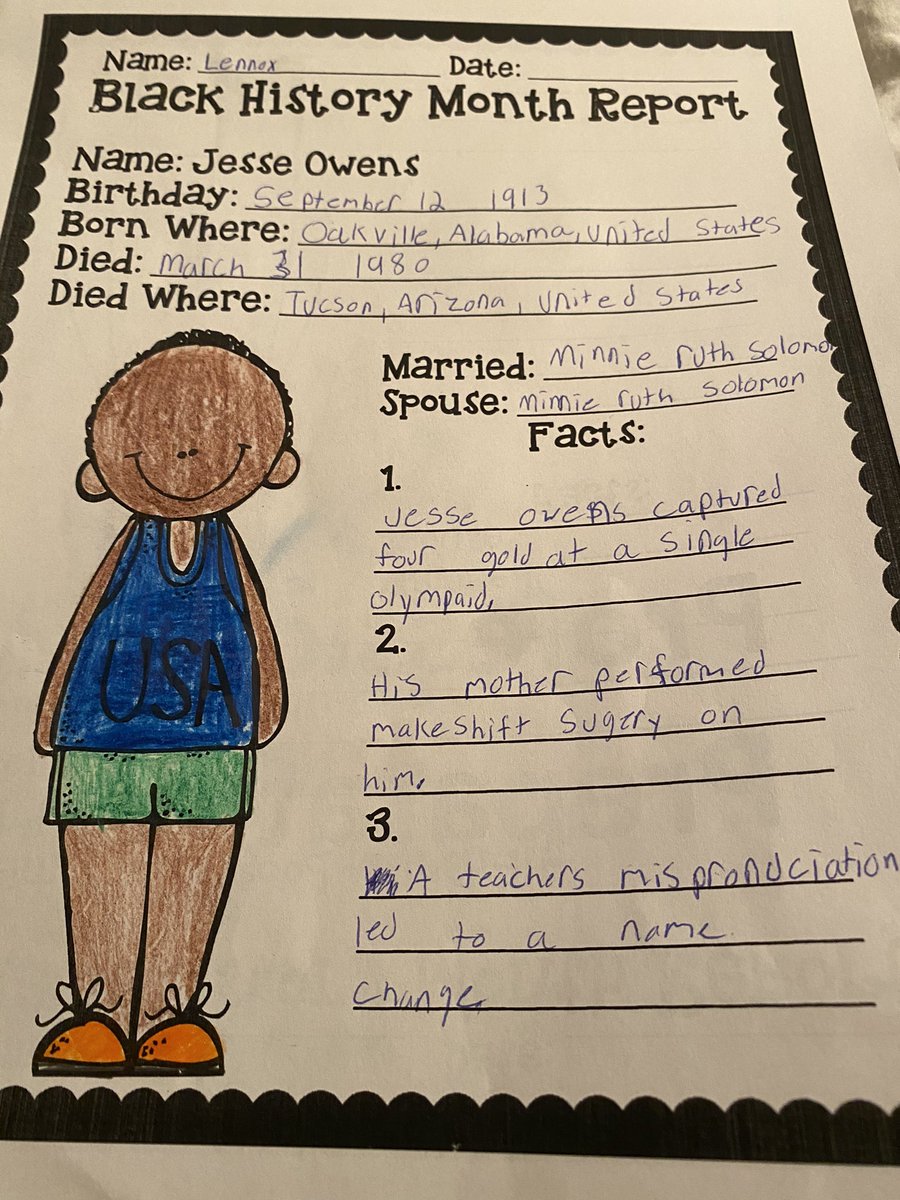 Name: Lennox Date:
Black History Month Report
Name: Jesse Owens
Birthday: September 12 1913
Born Where: Oakville, Alabama, United States
Died: March 31 1980
Died Where: Tucson, Arizona, United States
Married: Minnie ruth Solomon
Spouse: mimie ruth solomon
Facts:
1.
Jesse owens captured
four gold at a single
olympaid.
2.
His mother performed
makeshift sugery on
him.
3.
A teachers mispronduciation
led to a name
change
USA